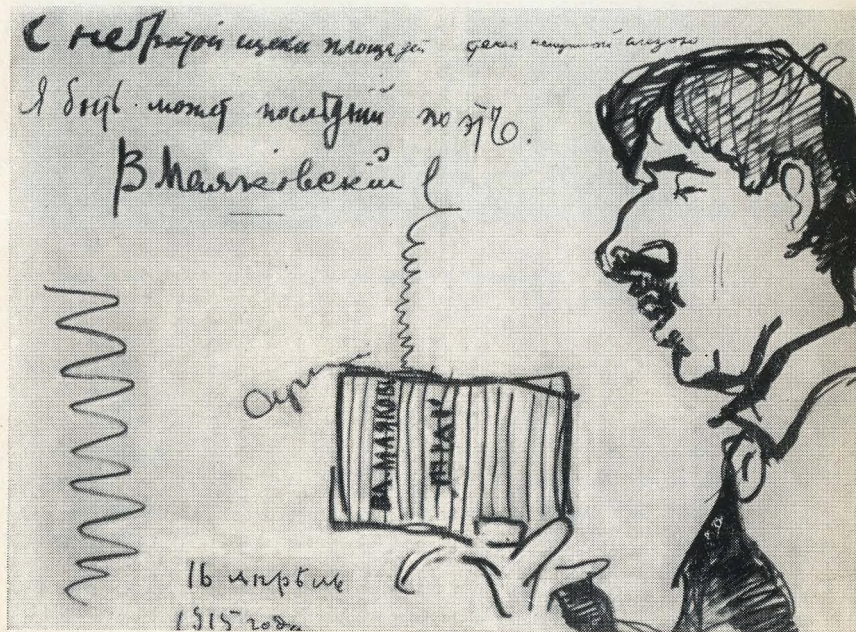 С небритой щеки площадей стекая ненужной слезою
Я быть может последний поэтъ.
В Маяковскій
ВЛ. МАЯКОВС
16 апрѣля
1915 года